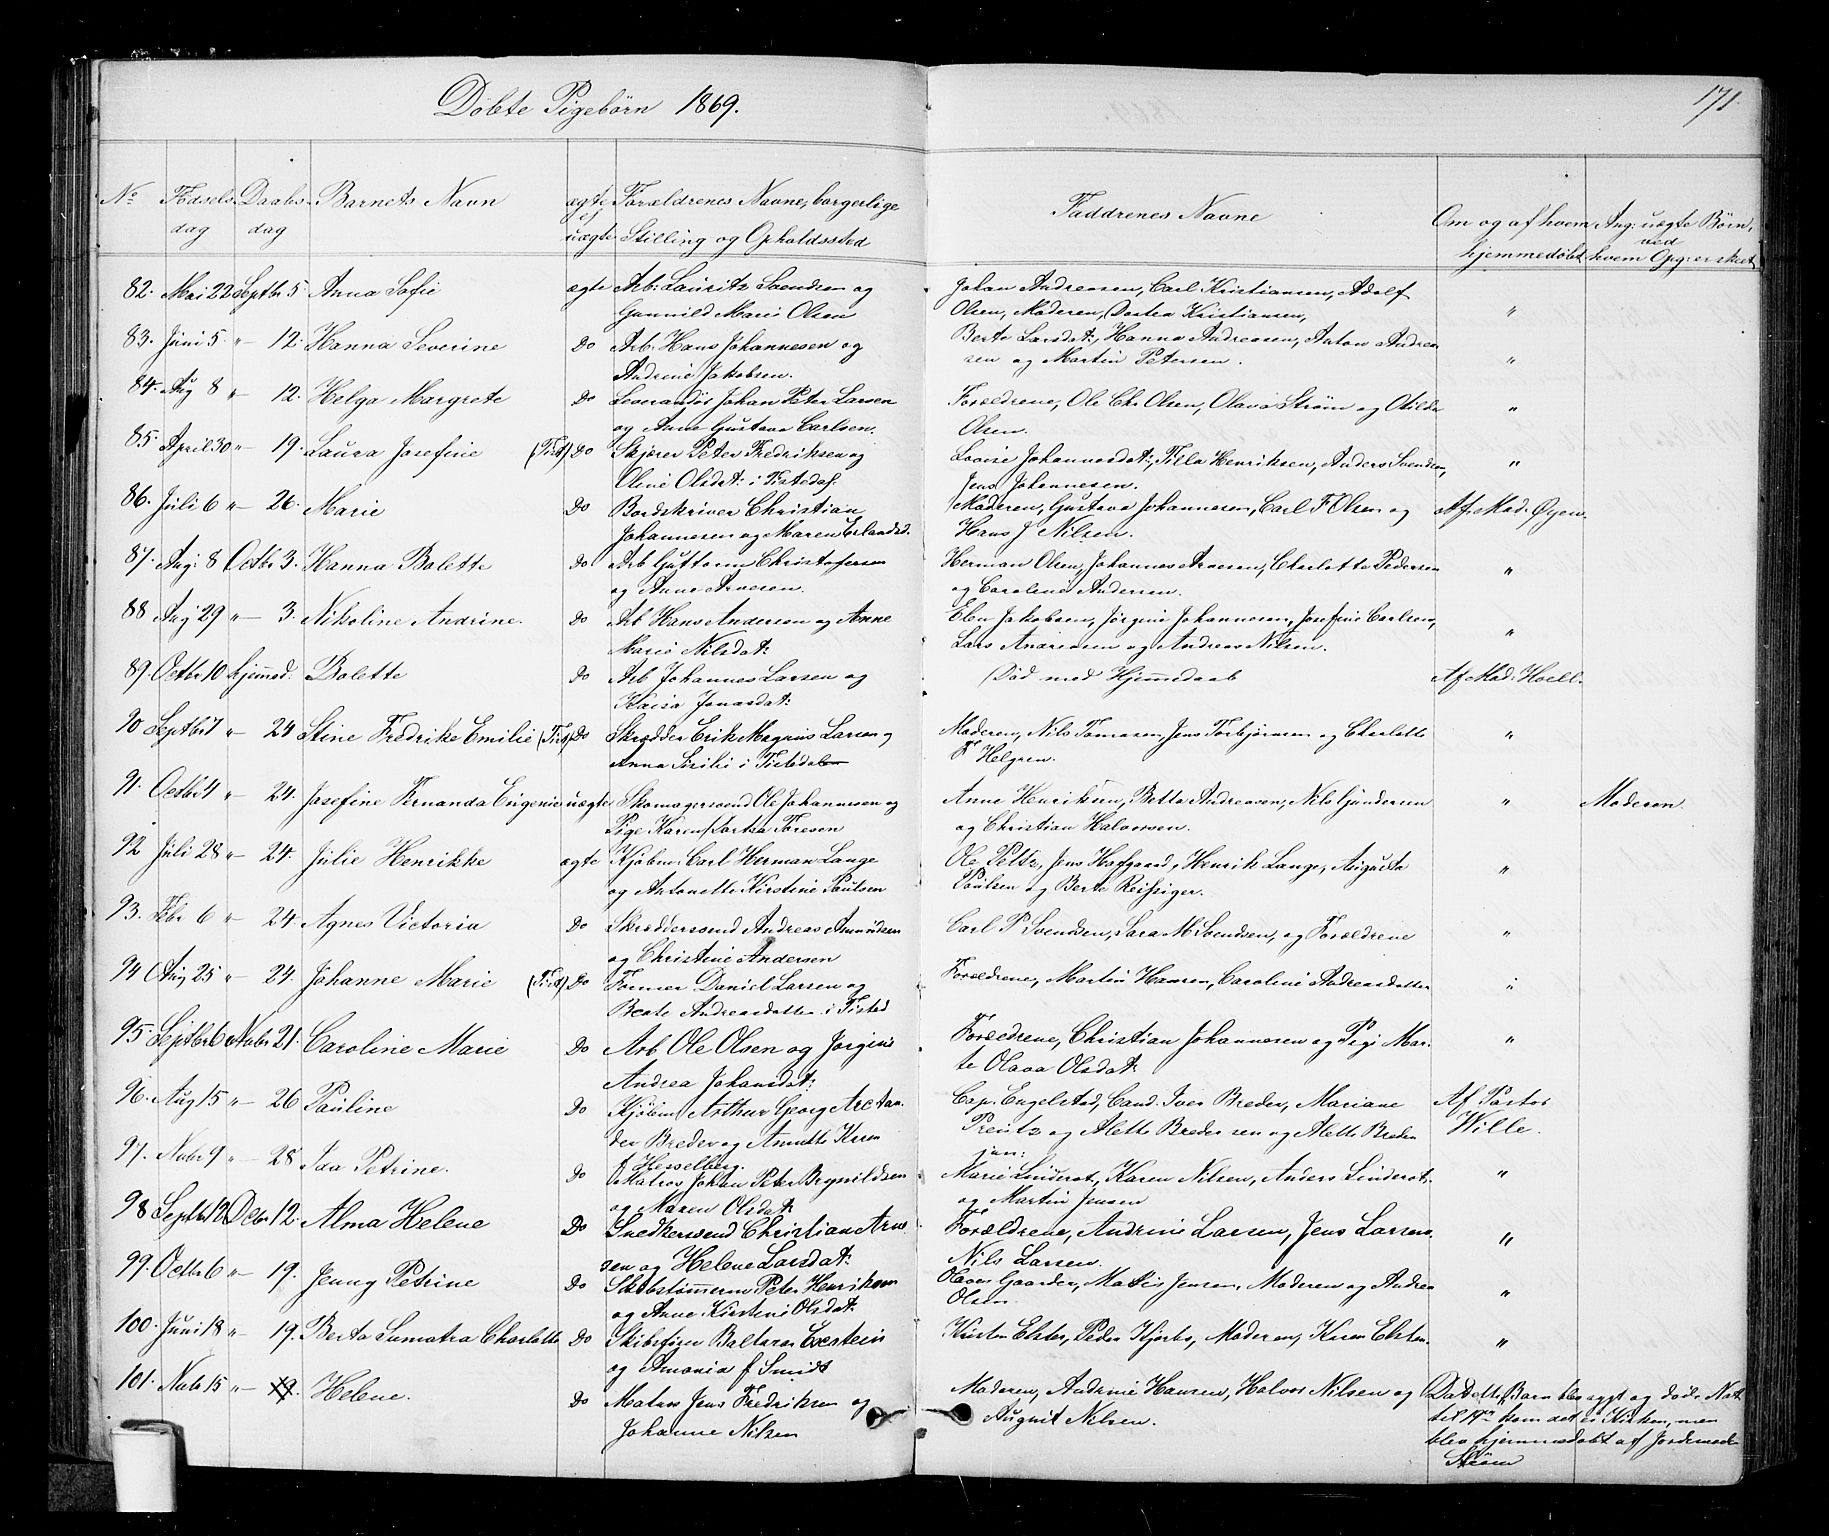 Døbte Pigebørn 1869.
171.
No Fødsels dag Daabs dag Barnets Navn ægte ej uægte Forældrenes Navne, borgerlige Stilling og Opholdssted Faddrenes Navne Om og af hvem hjemmedøbt Ang: uægte Børn, ved hvem Opg: er skeet
82. Mai 22 Septbr 5. Anna Sofie ægte Arb: Lauritz Svendsen og Johan Andreasen, Carl Kristiansen, Adolf
Gunnild Marie Olsen Olsen, Moderen, Dortea Kristiansen, "
83. Juni 5 " 12. Hanna Severine Do Arb. Hans Johannesen og Berte Larsdat:, Hanna Andreasen, Anton Andrea
Andrine Jakobsen. sen og Martin Petersen. "
84. Aug 8 " 12. Helga Margrete Do Leverandør Johan Peter Larsen Forældrene, Ole Chr. Olsen, Olava Strøm og Otilde "
og Anne Gustava Carlsen. Olsen.
85. April 30 " 19. Laura Josefine (Tist) Do Skjører Peter Fredriksen og Lovise Johannesdat:, Tilla Henriksen, Anders Svendsen, "
Oline Olsdat: i Tistedal. Jens Johannesen.
86. Juli 6 " 26. Marie Do Bordskriver Christian Moderen, Gustava Johannesen, Carl F. Olsen og Af Mad. Øyen.
Johannesen og Maren Erlandsd. Hans J Nilsen.
87. Aug: 8 Octbr 3. Hanna Bolette Do Arb Guttorm Christofersen Herman Olsen, Johannes Arnesen, Charlotte Pedersen "
og Anne Arnesen. og Caroline Andersen.
88 Aug 29 " 3. Nikoline Andrine. Do Arb Hans Andersen og Anne Elen Jakobsen, Jørgine Johannesen, Josefine Carlsen, "
Marie Nilsdat: Lars Andreasen og Andreas Nilsen.
89. Octbr 10 hjemmed. Bolette Do Arb Johannes Larsen og Død med Hjemmedaab Af Mad. Hoell.
Kaisa Jonasdat:
90 Septbr 7 " 24 Stine Fredrike Emilie (Tist) Do Skrædder Erik Magnus Larsen og Moderen, Nils Tomasen, Jens Torbjørnsen og Charlotte "
Anna Sisilie i Tistedalen F Helgren.
91. Octbr 4 " 24. Josefine Fernanda Eugenie uægte Skomagersvend Ole Johannesen og Anne Henriksen, Bette Andreasen, Nils Gundersen " Moderen.
Pige Karen Dortea Toresen og Christian Halvorsen.
92 Juli 28 " 24. Julie Henrikke ægte Kjøbm: Carl Herman Lange Ole Peltz, Jens Hafgaard, Henrik Lange, Augusta "
og Antonette Kirstine Paulsen Paulsen og Berte Reissiger.
93. Febr 6 " 24. Agnes Victoria Do Skræddersvend Andreas Amundsen Carl P Svendsen, Sara M Svendsen, og Forældrene "
og Christine Andersen
94 Aug 25 " 24. Johanne Marie (Tist) Do Former Daniel Larsen og Forældrene, Martin Hansen, Caroline Andreasdatter "
Beate Andreasdatter i Tisted
95. Septbr 6 Novbr 21. Caroline Marie Do Arb Ole Olsen og Jørgine Forældrene, Christian Johannesen og Pige Mar- "
Andrea Johansdat: te Olava Olsdat:
96. Aug 15 " 26 Pauline Do Kjøbm Arthur Georg Arctan- Cap. Engelstad, Cand. Iver Breder, Mariane Af Pastor
der Breder og Annette Karen Preutz og Alette Breder sen og Alette Breder Wille.
f Hesselberg. jun:
97. Novbr 9 " 28 Ida Petrine. Do Matros Johan Peter Brynildsen Marie Linderot, Karen Nilsen, Anders Linderot, "
og Maren Olsdat: og Martin Jensen
98 Septbr 12 Decbr 12. Alma Helene Do Snedkersvend Christian Arne Forældrene, Andrine Larsen, Jens Larsen "
sen og Helene Larsdat: Nils Larsen.
99. Octbr 6 " 19. Jenny Petrine Do Skibstømrm Peter Henriksen Olaves Gaarder, Mattis Jensen, Moderen og Andrea "
og Anne Kirstine Olsdat: Olsen.
100. Juni 18 " 19. Berta Sumatra Charlotte Do Skibsfører Baltazar Eversteen Kirsten Elster, Peder Kjerbo, Moderen, Karen Elsten. "
og Amonia f Smidt
101. Novbr 15 " 19. Helene. Do Matros Jens Fredriksen og Moderen, Andrine Hansen, Halvor Nilsen og Da dette Barn blev sygt og døde Nat-
Johanne Nilsen August Nilsen. ten til 19en kom det ei i Kirken, men
blev hjemmedøbt af Jordemoder
Strøm